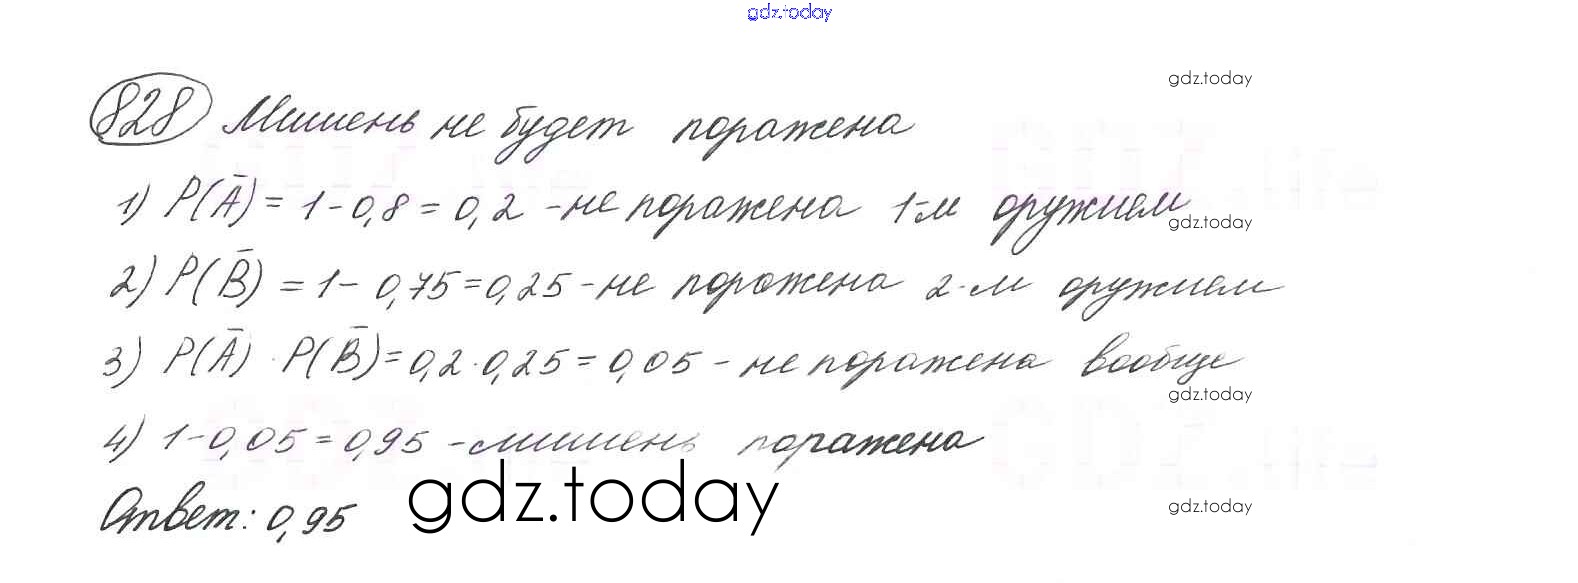 gdz.today
gdz.today
828 Мишень не будет поражена
1) P(Ā) = 1 - 0,8 = 0,2 - не поражена 1-м оружием
gdz.today
2) P(B̄) = 1 - 0,75 = 0,25 - не поражена 2-м оружием
3) P(Ā) · P(B̄) = 0,2 · 0,25 = 0,05 - не поражена вообще
gdz.today
4) 1 - 0,05 = 0,95 - мишень поражена
gdz.today
Ответ: 0,95
gdz.today